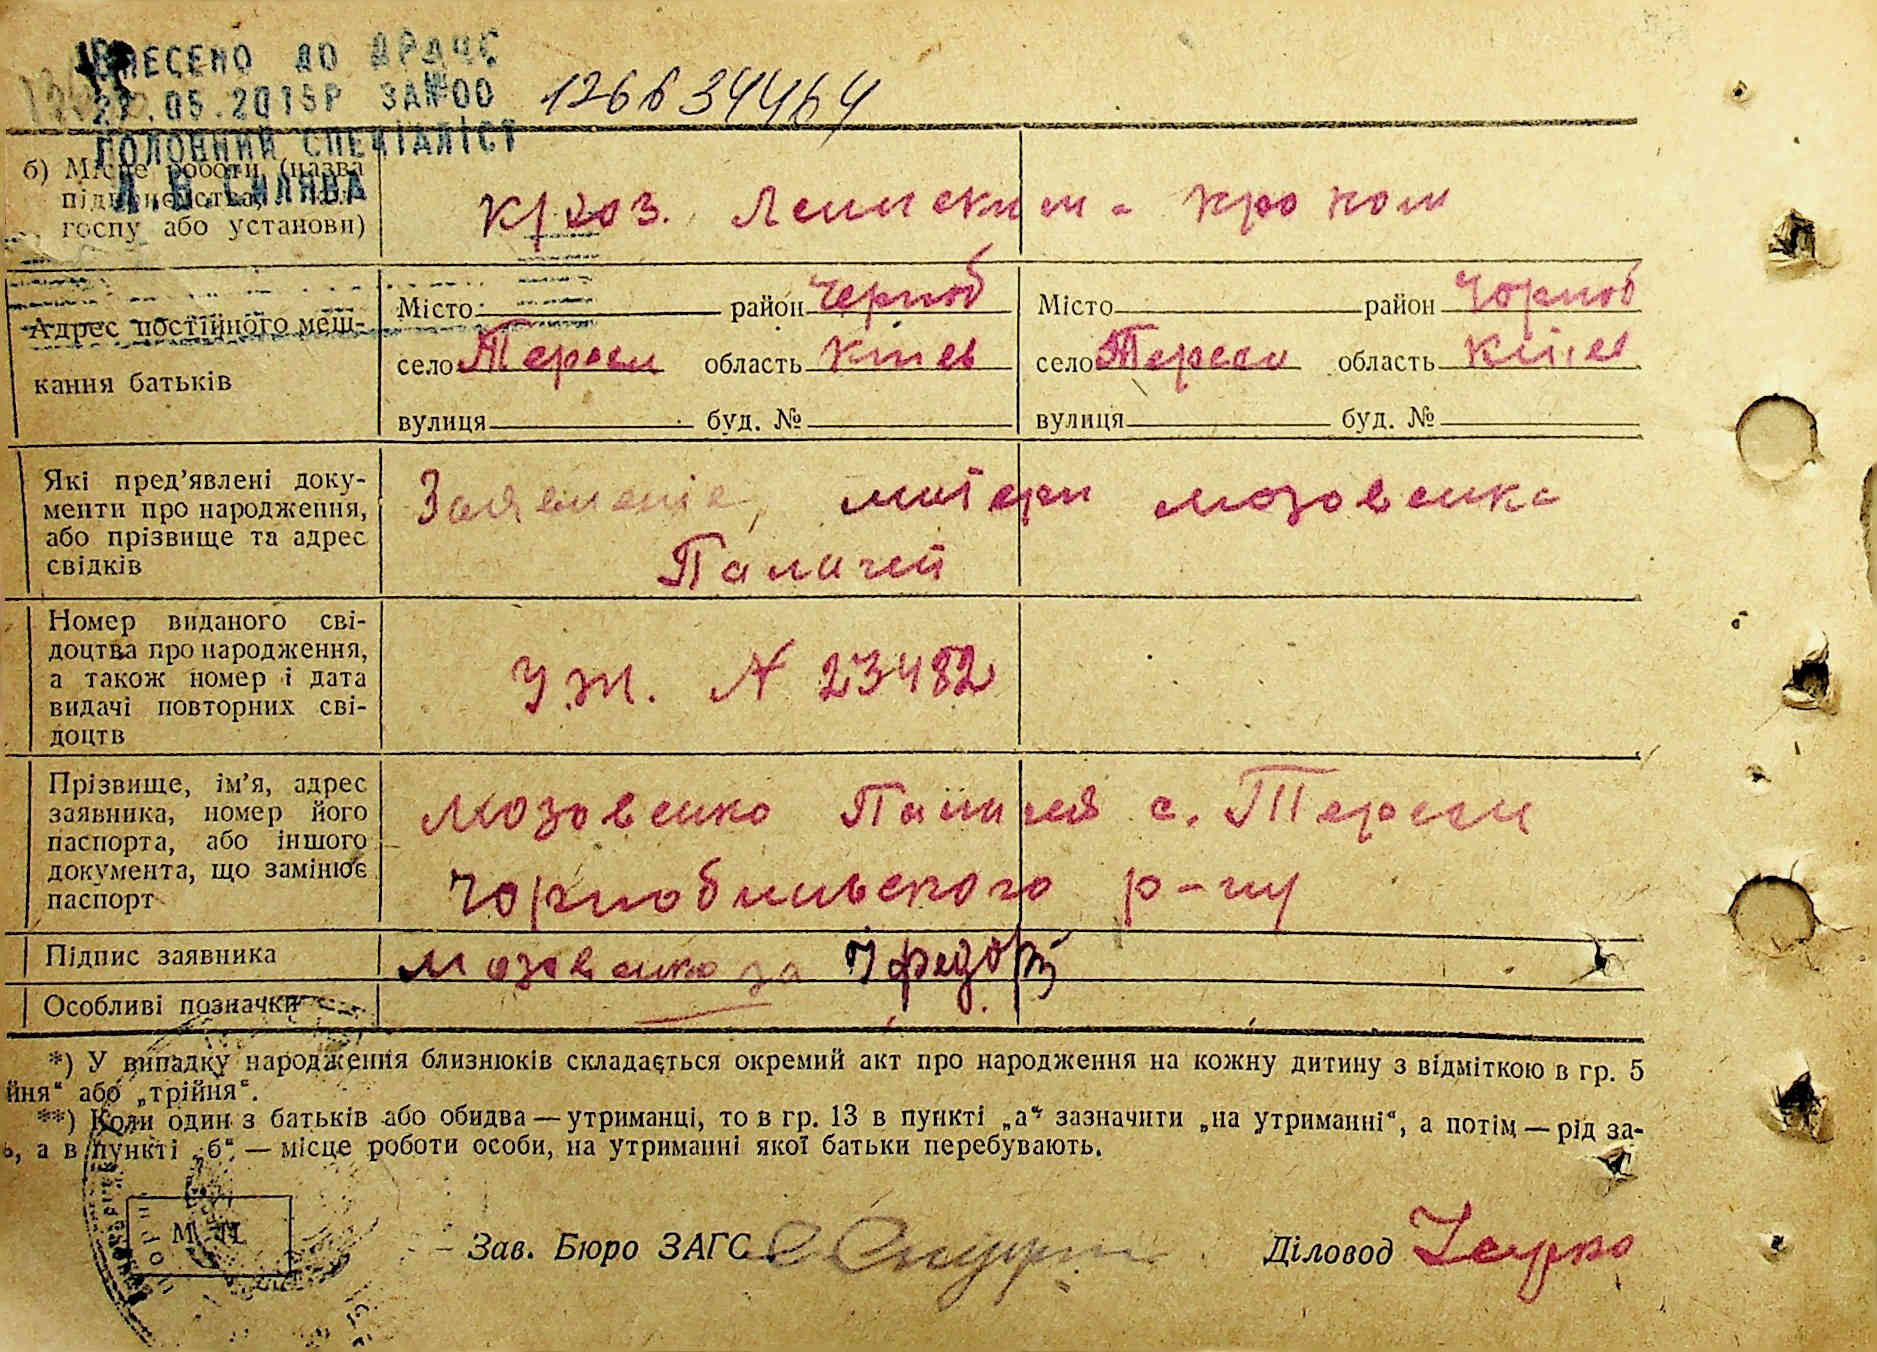 ВНЕСЕНО ДО ДРАЦС
22.05.2015Р ЗА№00 126634464
ГОЛОВНИЙ СПЕЦІАЛІСТ
СИЛЯВА
б) Місце роботи (назва
підприємства,
госпу або установи)
К/гоз. Лениским - кроком
Адрес постійного меш-
кання батьків
Місто район Черноб
село Тереси область Києв
вулиця буд. №
Місто район Чорноб
село Тереси область Києв
вулиця буд. №
Які пред’явлені доку-
менти про народження,
або прізвище та адрес
свідків
Заявление, матери Мозовенко
Палагеї
Номер виданого сві-
доцтва про народження,
а також номер і дата
видачі повторних сві-
доцтв
У.Ж. N 23482
Прізвище, ім’я, адрес
заявника, номер його
паспорта, або іншого
документа, що замінює
паспорт
Мозовенко с. Тереси
Чорнобильского р-ну
Підпис заявника
Мозовенко за
Особливі позначки
*) У випадку народження близнюків складається окремий акт про народження на кожну дитину з відміткою в гр. 5
йня“ або „трійня“.
**) Коли один з батьків або обидва — утриманці, то в гр. 13 в пункті „а“ зазначити „на утриманні“, а потім — рід за-
ь, а в пункті „б“ — місце роботи особи, на утриманні якої батьки перебувають.
М. П.
Зав. Бюро ЗАГС
Діловод